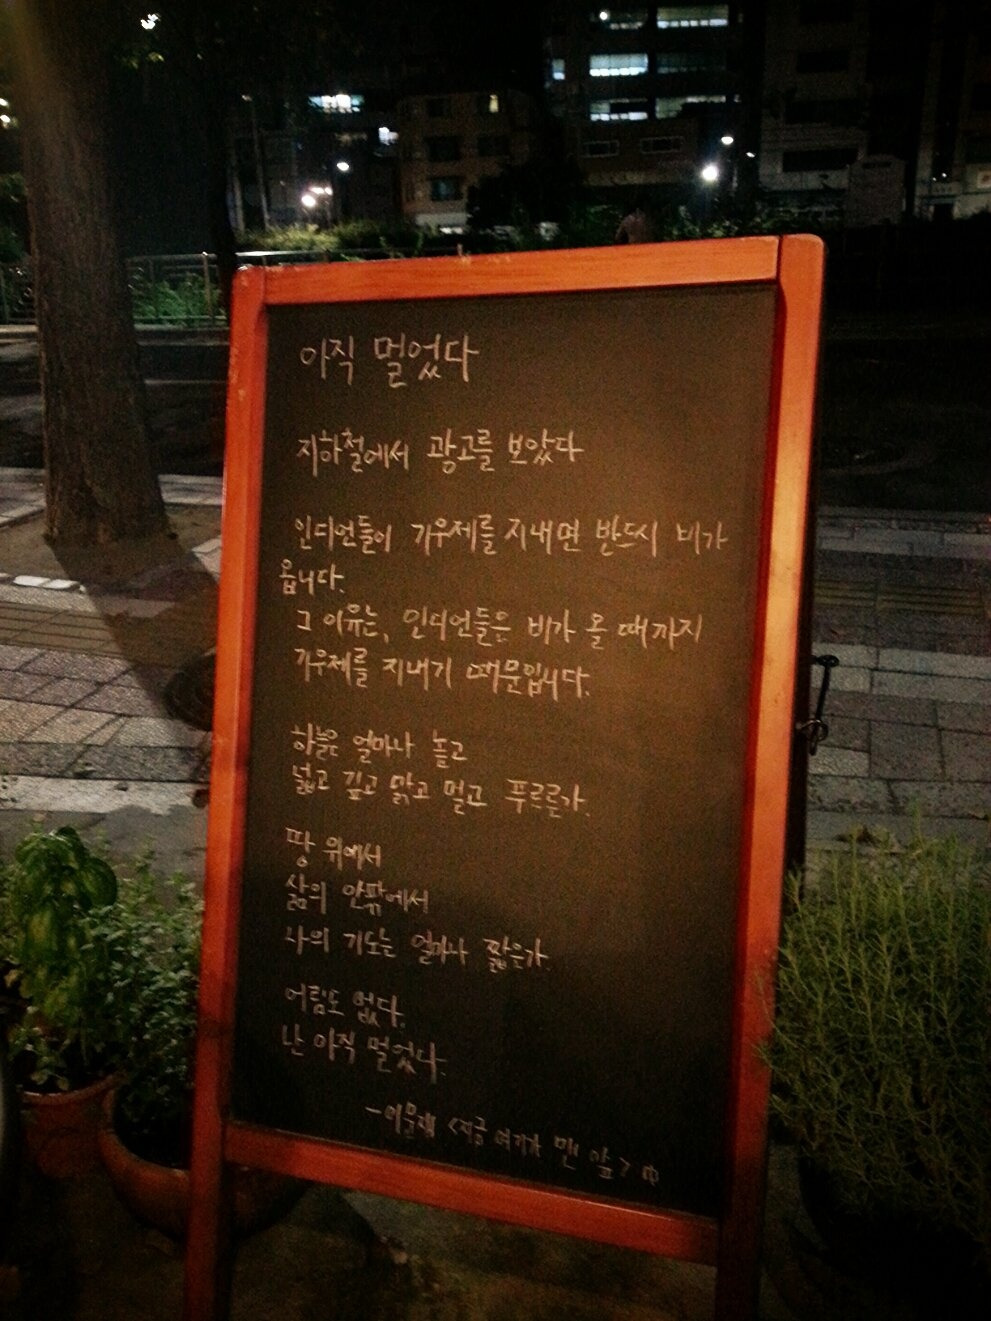 아직 멀었다
지하철에서 광고를 보았다
인디언들이 기우제를 지내면 반드시 비가
옵니다.
그 이유는, 인디언들은 비가 올 때까지
기우제를 지내기 때문입니다.
하늘은 얼마나 높고
넓고 깊고 맑고 멀고 푸르른가.
땅 위에서
삶의 안팎에서
나의 기도는 얼마나 짧은가.
어림도 없다.
난 아직 멀었다.
-이문재 <지금 여기가 맨 앞> 中